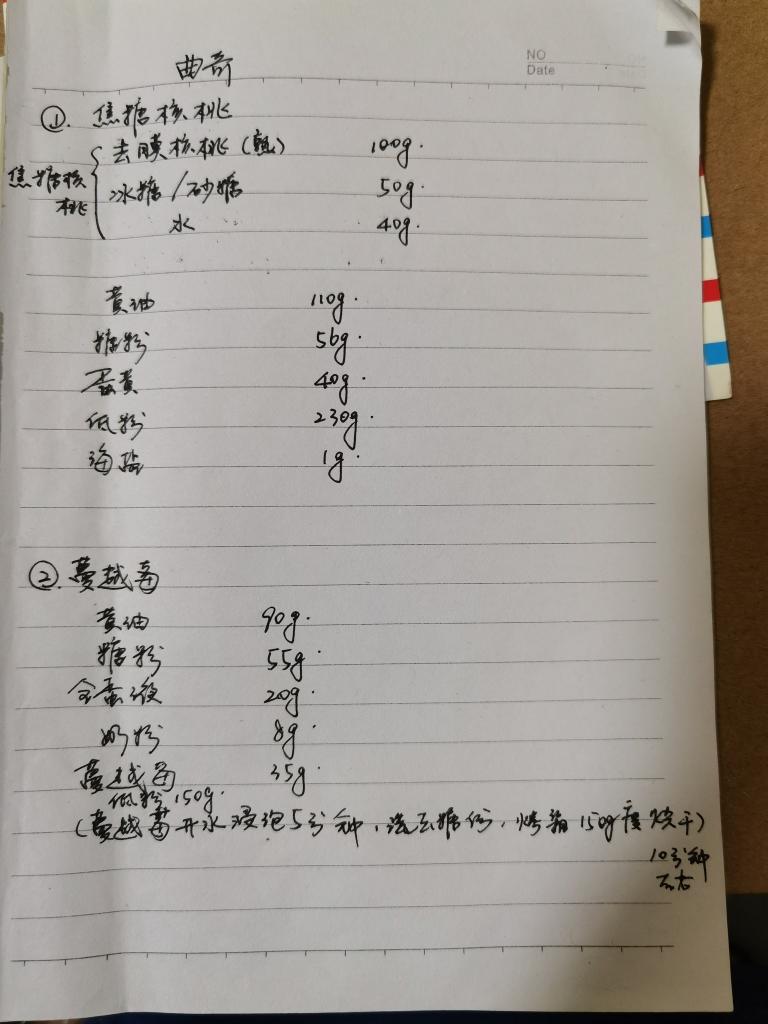 NO
Date
曲奇
①. 焦糖核桃
焦糖核桃
去膜核桃(熟) 100g.
冰糖/砂糖 50g.
水 40g.
黄油 110g.
糖粉 56g.
蛋黄 40g.
低粉 230g.
海盐 1g.
②. 蔓越莓
黄油 90g.
糖粉 55g.
全蛋液 20g.
奶粉 8g.
蔓越莓 35g.
低粉 150g.
(蔓越莓开水浸泡5分钟,洗去糖份,烤箱150g度烘干)
10分钟
左右